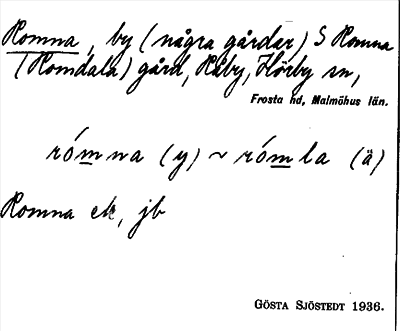 Romna, by (några gårdar) S Romna
(Romdala) gård, Häby, Hörby sn,
Frosta hd, Malmöhus län.
rómna (y) ~ rómla (ä)
Romna ek, jb
GÖSTA SJÖSTEDT 1936.